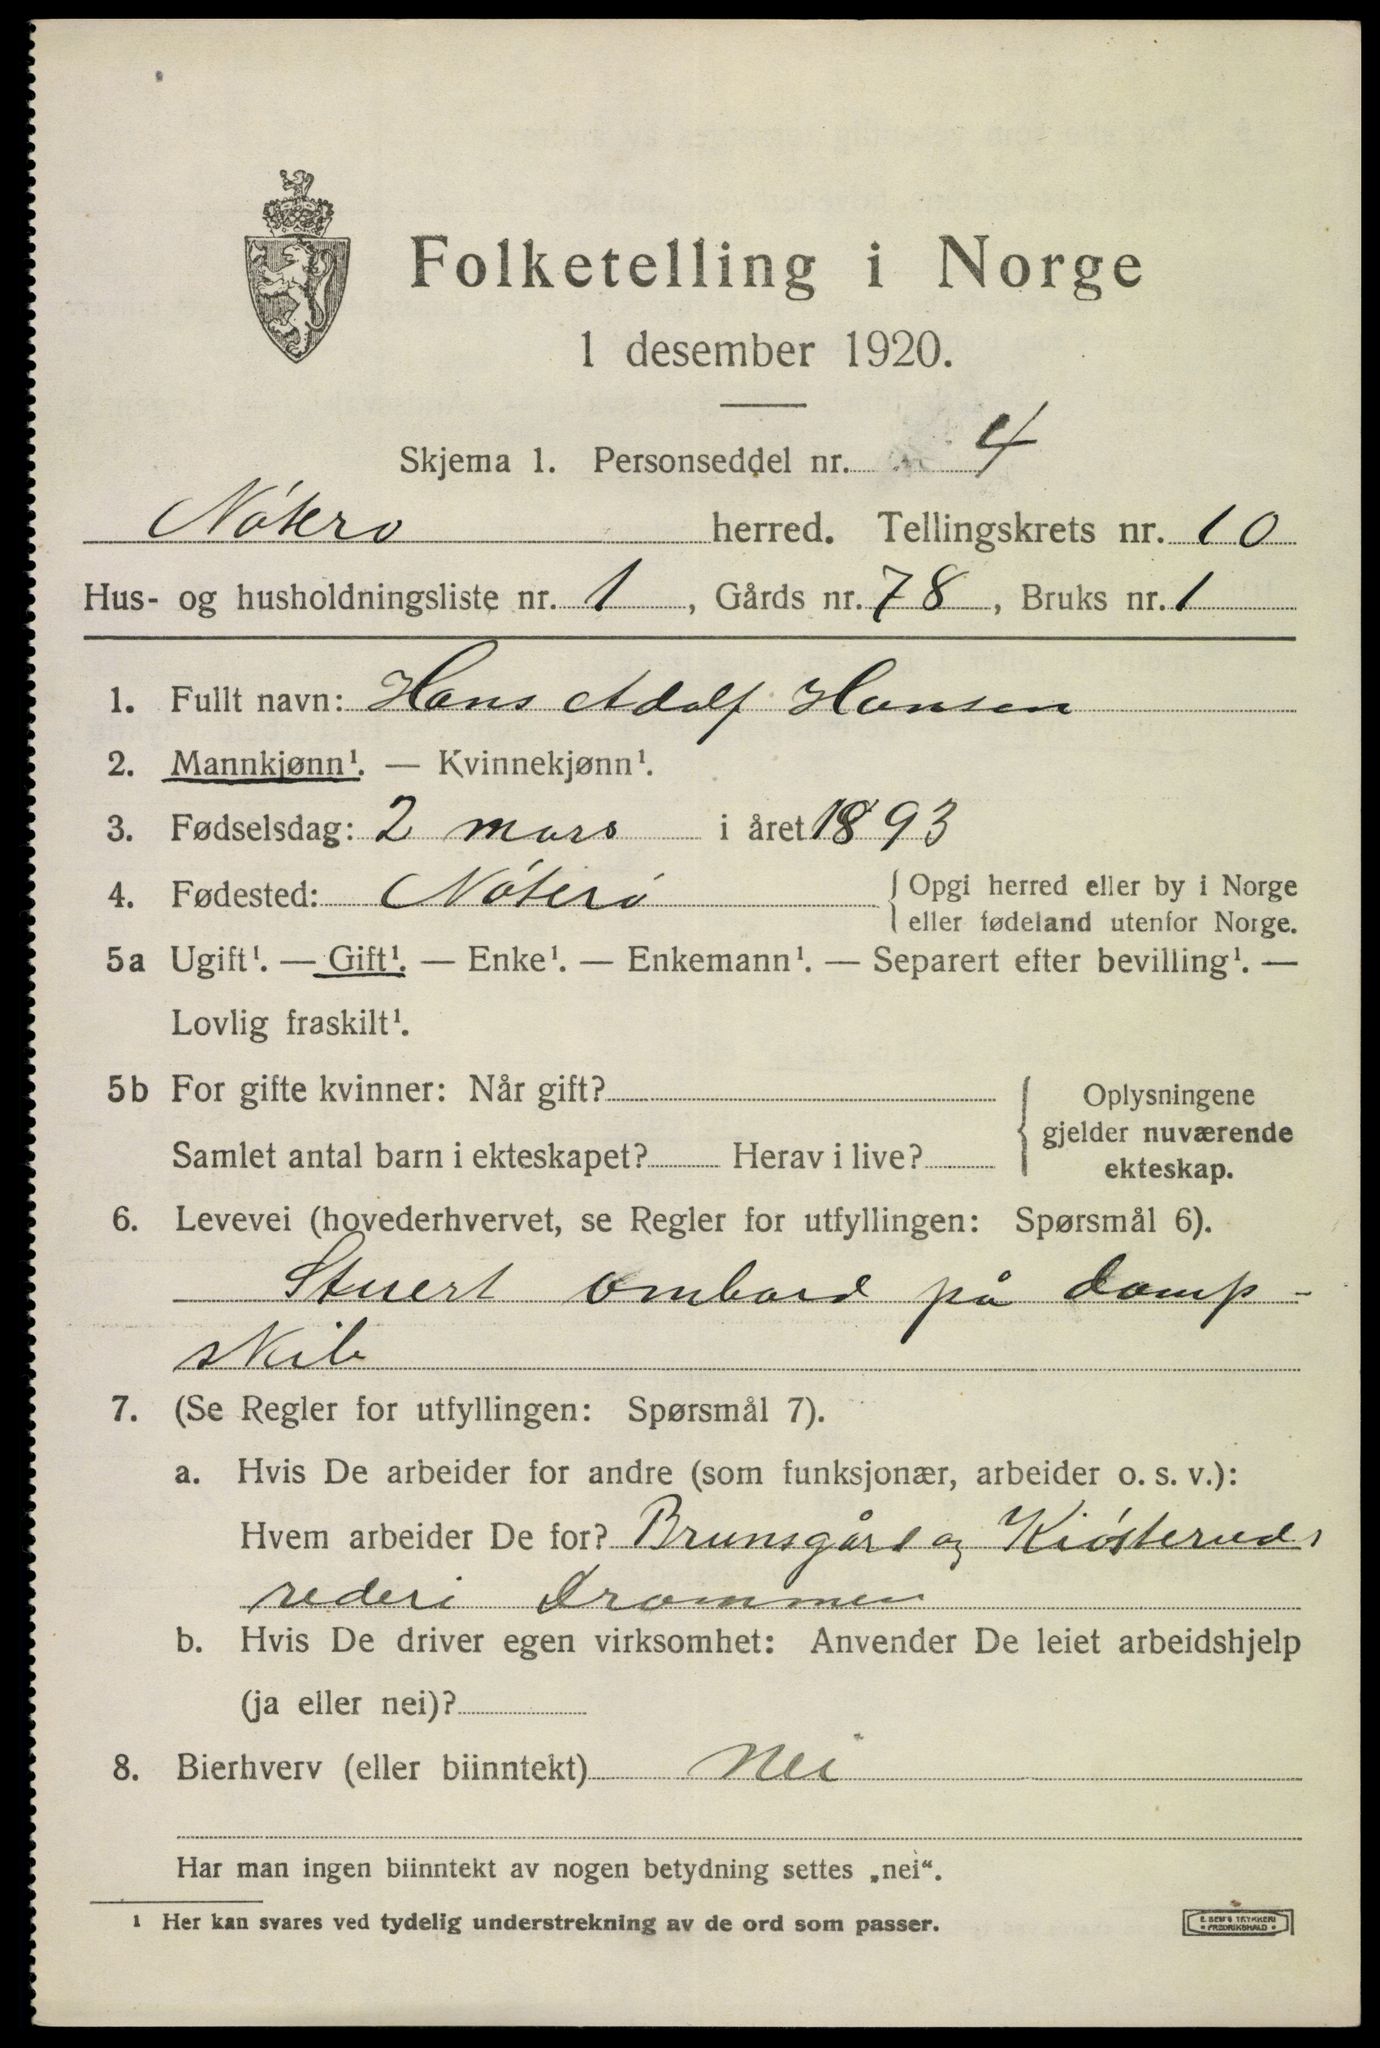 Folketelling i Norge
1 desember 1920.
Skjema 1. Personseddel nr. 4
Nøterø herred. Tellingskrets nr. 10
Hus- og husholdningsliste nr. 1, Gårds nr. 78, Bruks nr. 1
1. Fullt navn: Hans Adolf Hansen
2. Mannkjønn¹. — Kvinnekjønn¹.
3. Fødselsdag: 2 mars i året 1893
4. Fødested: Nøterø { Opgi herred eller by i Norge
eller fødeland utenfor Norge.
5a Ugift¹. — Gift¹. — Enke¹. — Enkemann¹. — Separert efter bevilling¹. —
Lovlig fraskilt¹.
5b For gifte kvinner: Når gift?
Samlet antal barn i ekteskapet? Herav i live?
{ Oplysningene
gjelder nuværende
ekteskap.
6. Levevei (hovederhvervet, se Regler for utfyllingen: Spørsmål 6).
Stuert ombord på damp-
skib
7. (Se Regler for utfyllingen: Spørsmål 7).
a. Hvis De arbeider for andre (som funksjonær, arbeider o. s. v.):
Hvem arbeider De for? Brunsgård og Kiøsteruds
rederi Drammen
b. Hvis De driver egen virksomhet: Anvender De leiet arbeidshjelp
(ja eller nei)?
8. Bierhverv (eller biinntekt) Nei
Har man ingen biinntekt av nogen betydning settes „nei“.
¹ Her kan svares ved tydelig understrekning av de ord som passer.
E. SEM'S TRYKKERI
* FREDRIKSHALD *